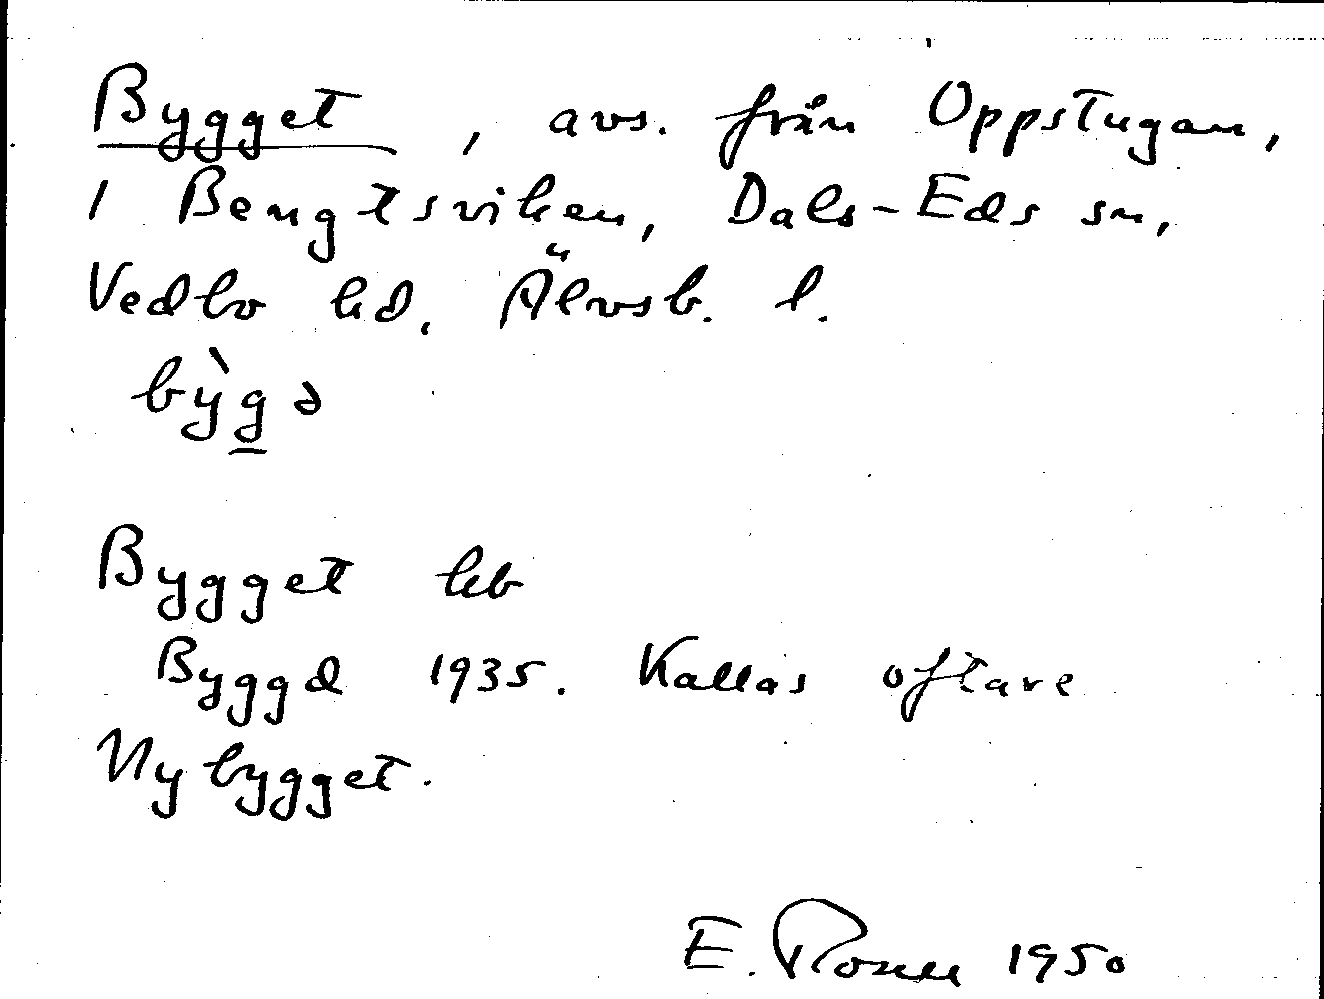 Bygget, avs. från Oppstugan,
1 Bengtsviken, Dals-Eds sn,
Vedbo hd. Älvsb. l.
bỳg̲ə
Bygget
Byggd 1935. Kallas oftare
Nybygget.
E. 1950